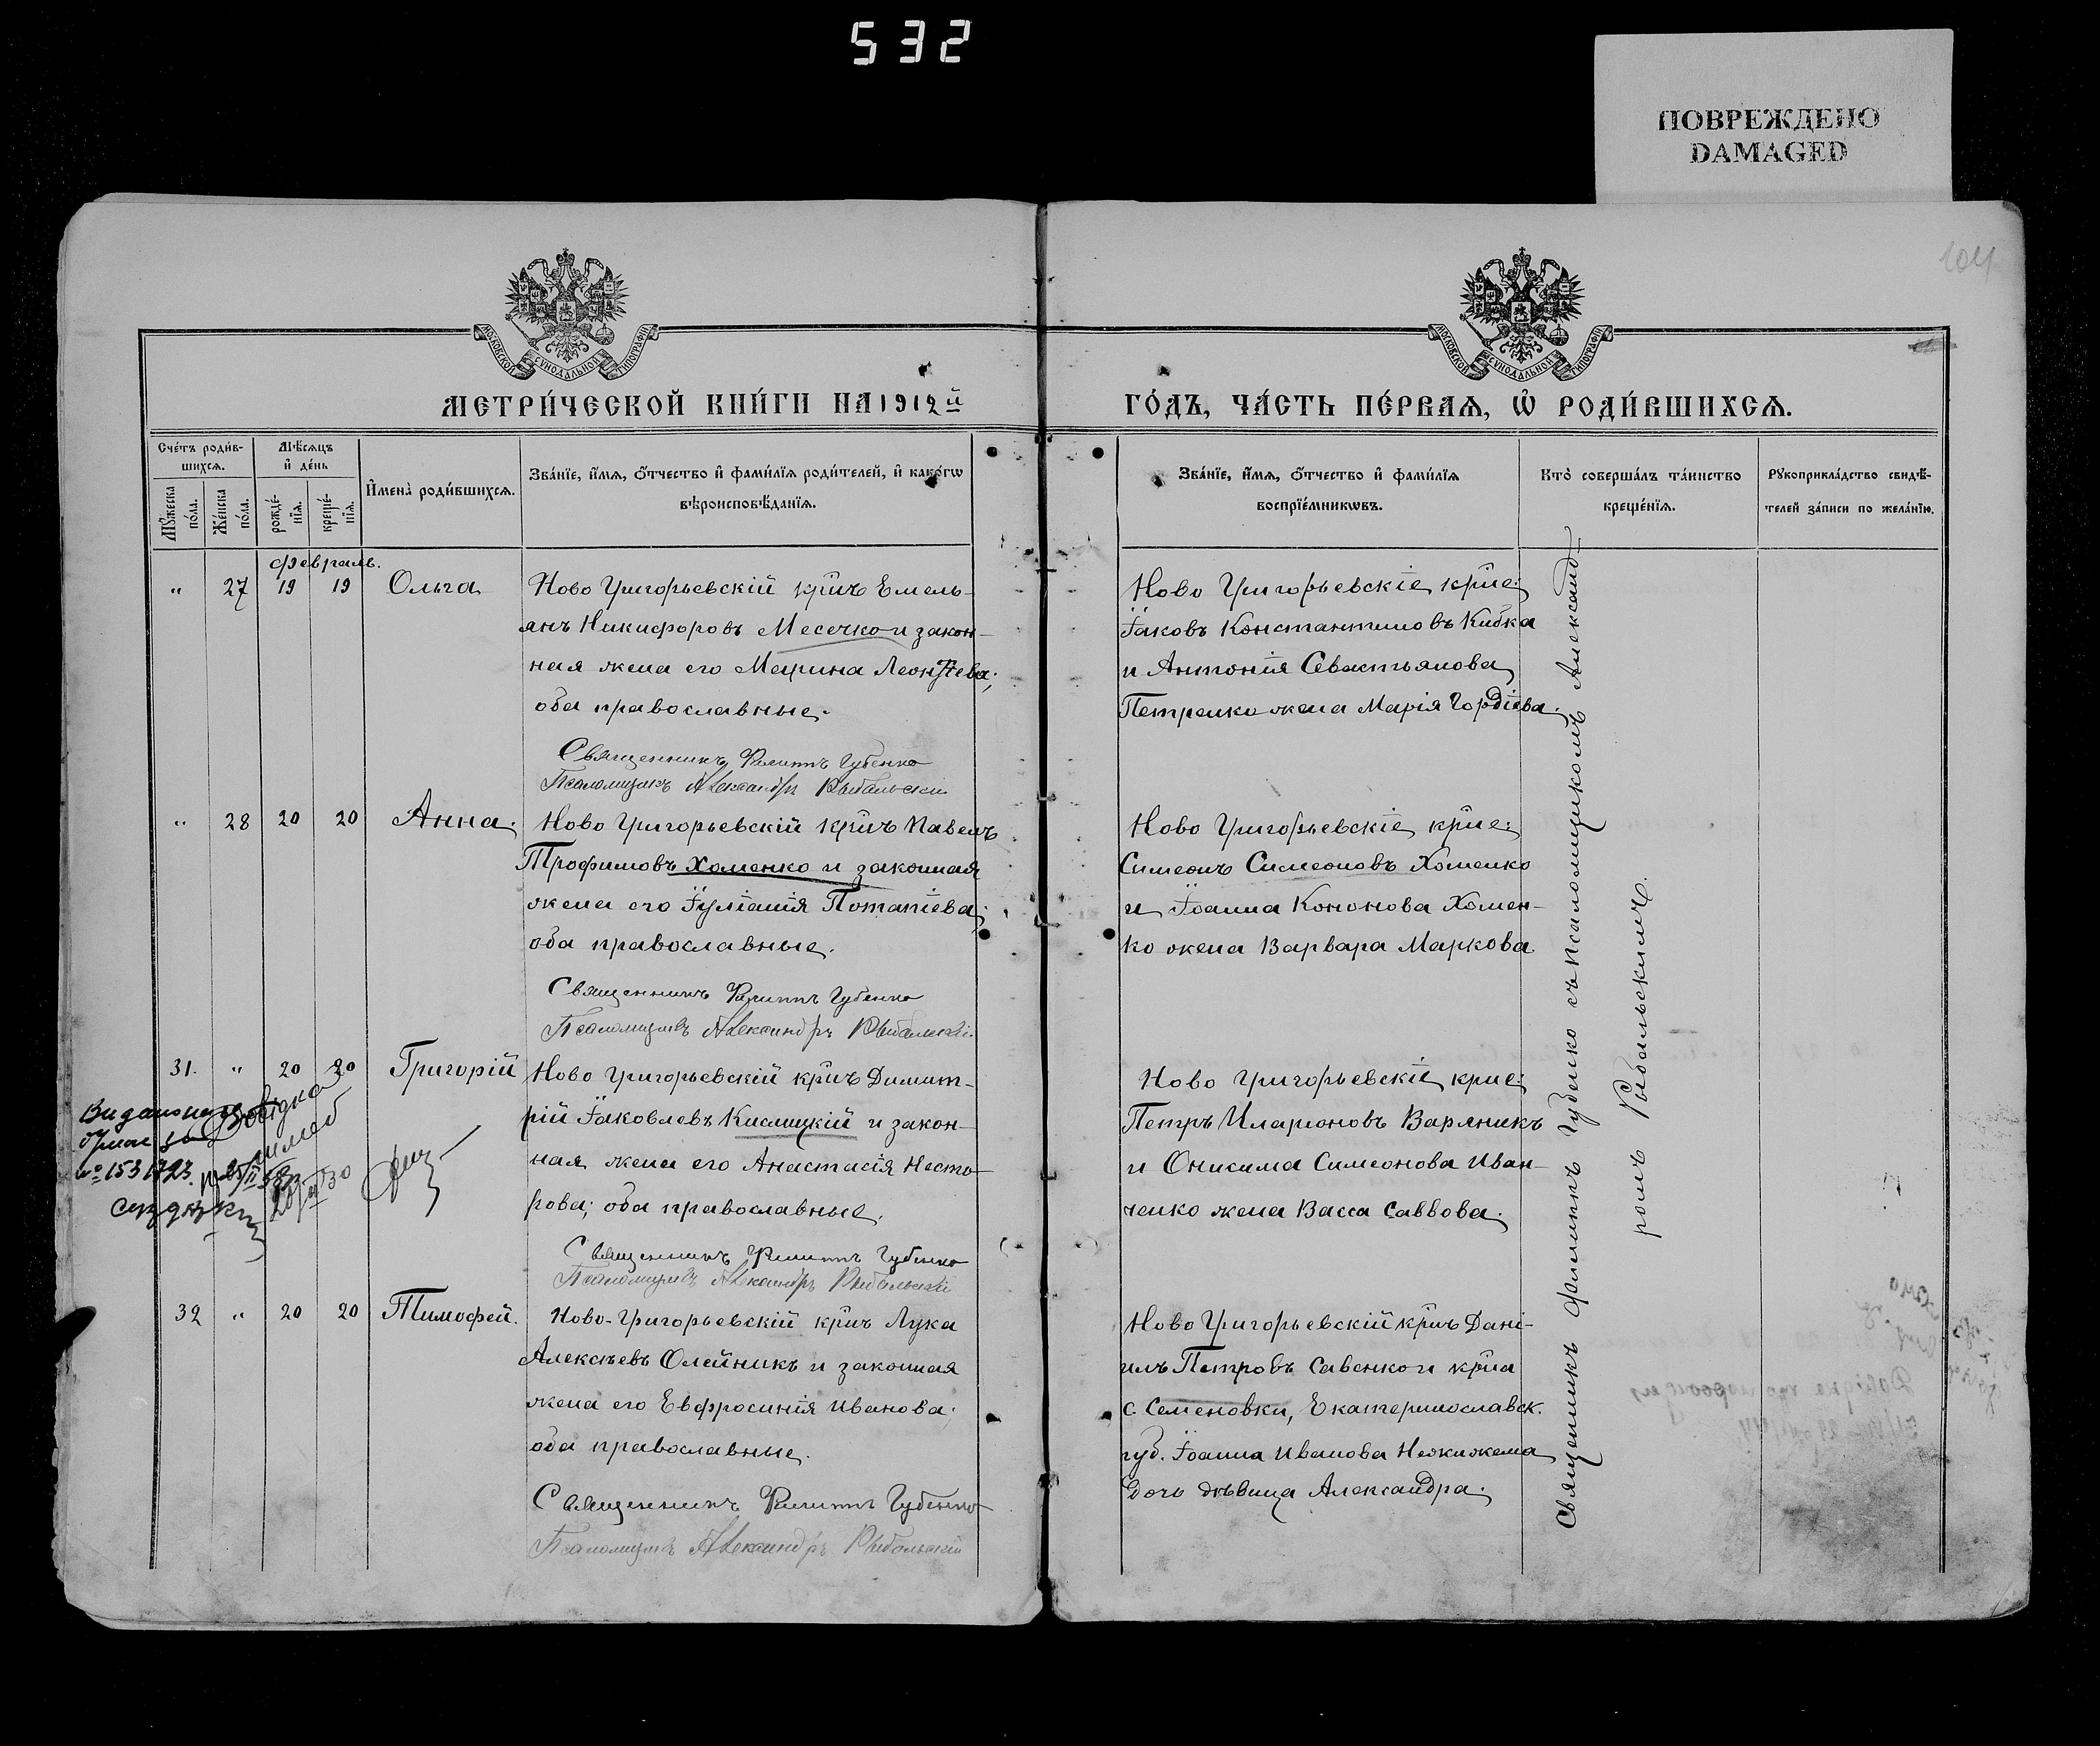 532
ПОВРЕЖДЕНО
DAMAGED
104
МОСКОВСКОЙ СУНОДАЛЬНОЙ ТИПОГРАФІИ
МОСКОВСКОЙ СУНОДАЛЬНОЙ ТИПОГРАФІИ
МЕТРИ́ЧЕСКОЙ КНИ́ГИ НА 1912й
ГО́ДЪ, ЧА́СТЬ ПЕ́РВАѦ, Ѡ҆ РОДИ́ВШИХСѦ.
Сче́тъ роди́в-
шихсѧ.
Мꙋ́жеска по́ла.
Же́нска по́ла.
Мѣ́сѧцъ
и҆ де́нь
рожде́-
нїѧ.
креще́-
нїѧ.
И҆мена̀ роди́вшихсѧ.
Зва́нїе, и҆́мѧ, ѻ҆́тчество и҆ фами́лїѧ роди́телей, и҆ како́гѡ
вѣроисповѣ́данїѧ.
Зва́нїе, и҆́мѧ, ѻ҆́тчество и҆ фами́лїѧ
воспрїе́мникѡвъ.
Кто̀ соверша́лъ та́инство
креще́нїѧ.
Рꙋкоприкла́дство свидѣ́-
телей за́писи по жела́нїю.
Февраль.
" 27 19 19 Ольга
Ново Григорьевскій кр̃нъ Емель-
янъ Никифоровъ Месечко и закон-
ная жена его Марина Леонтьева;
оба православные.
Священникъ Филиппъ Губенко
Псаломщикъ Александръ Рыбальскій
Ново Григорьевскіе кр̃не:
Іаковъ Константиновъ Кибка
и Антонія Севастьянова
Петренко жена Марія Гордіева.
" 28 20 20 Анна.
Ново Григорьевскій кр̃нъ Павелъ
Трофимовъ Хоменко и законная
жена его Іуліанія Потапіева;
оба православные.
Священникъ Филиппъ Губенко
Псаломщикъ Александръ Рыбальскій.
Ново Григорьевскіе кр̃не:
Симеонъ Симеоновъ Хоменко
и Іоанна Кононова Хомен-
ко жена Варвара Маркова.
31. " 20 20 Григорій
Ново Григорьевскій кр̃нъ Димит-
рій Іаковлевъ Кислицкій и закон-
ная жена его Анастасія Несто-
рова; оба православные.
Священникъ Филиппъ Губенко
Псаломщикъ Александръ Рыбальскій
Ново Григорьевскіе кр̃не:
Петръ Иларіоновъ Вареникъ
и Онисима Симеонова Иван-
ченко жена Васса Саввова.
№ 1531723
32 " 20 20 Тимофей.
Ново-Григорьевскій кр̃нъ Лука
Алексѣевъ Олейникъ и законная
жена его Евфросинія Иванова;
оба православные.
Священникъ Филиппъ Губенко
Псаломщикъ Александръ Рыбальскій
Ново Григорьевскій кр̃нъ Дані-
илъ Петровъ Савенко и кр̃на
с. Семеновки, Екатеринославск.
губ. Іоанна Иванова Нежижема
дочь дѣвица Александра.
Священникъ Филиппъ Губенко съ псаломщикомъ Александ-
ромъ Рыбальскимъ.